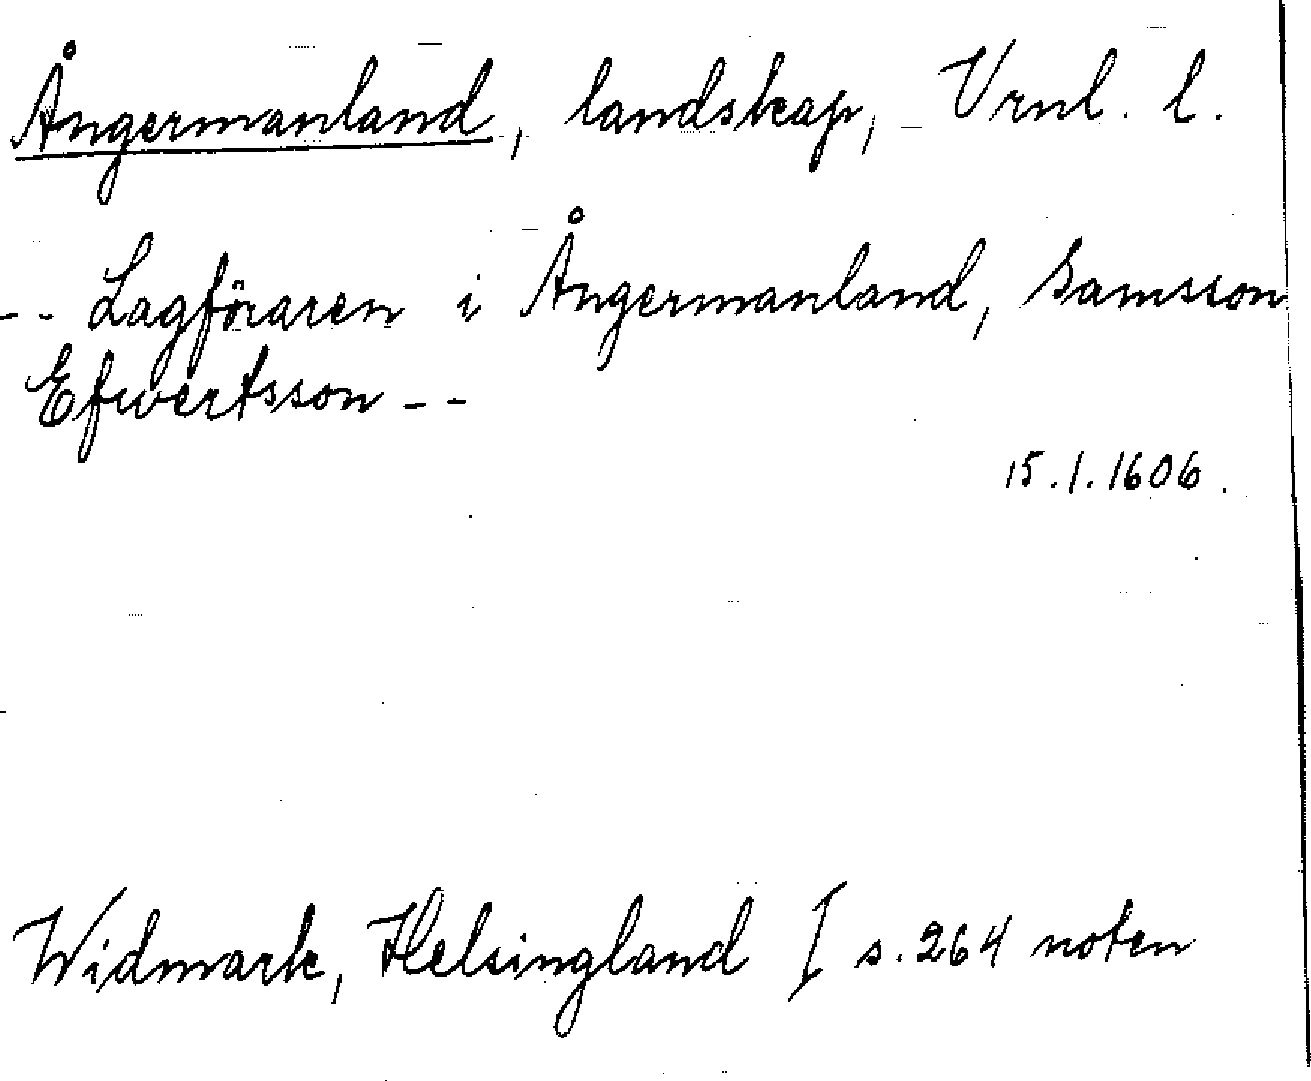 Ångermanland, landskap, Vrnl. l.
-- Lagföraren i Ångermanland, Samsson
Efwertsson --
15.1.1606.
Widmark, Helsingland I s. 264 noten